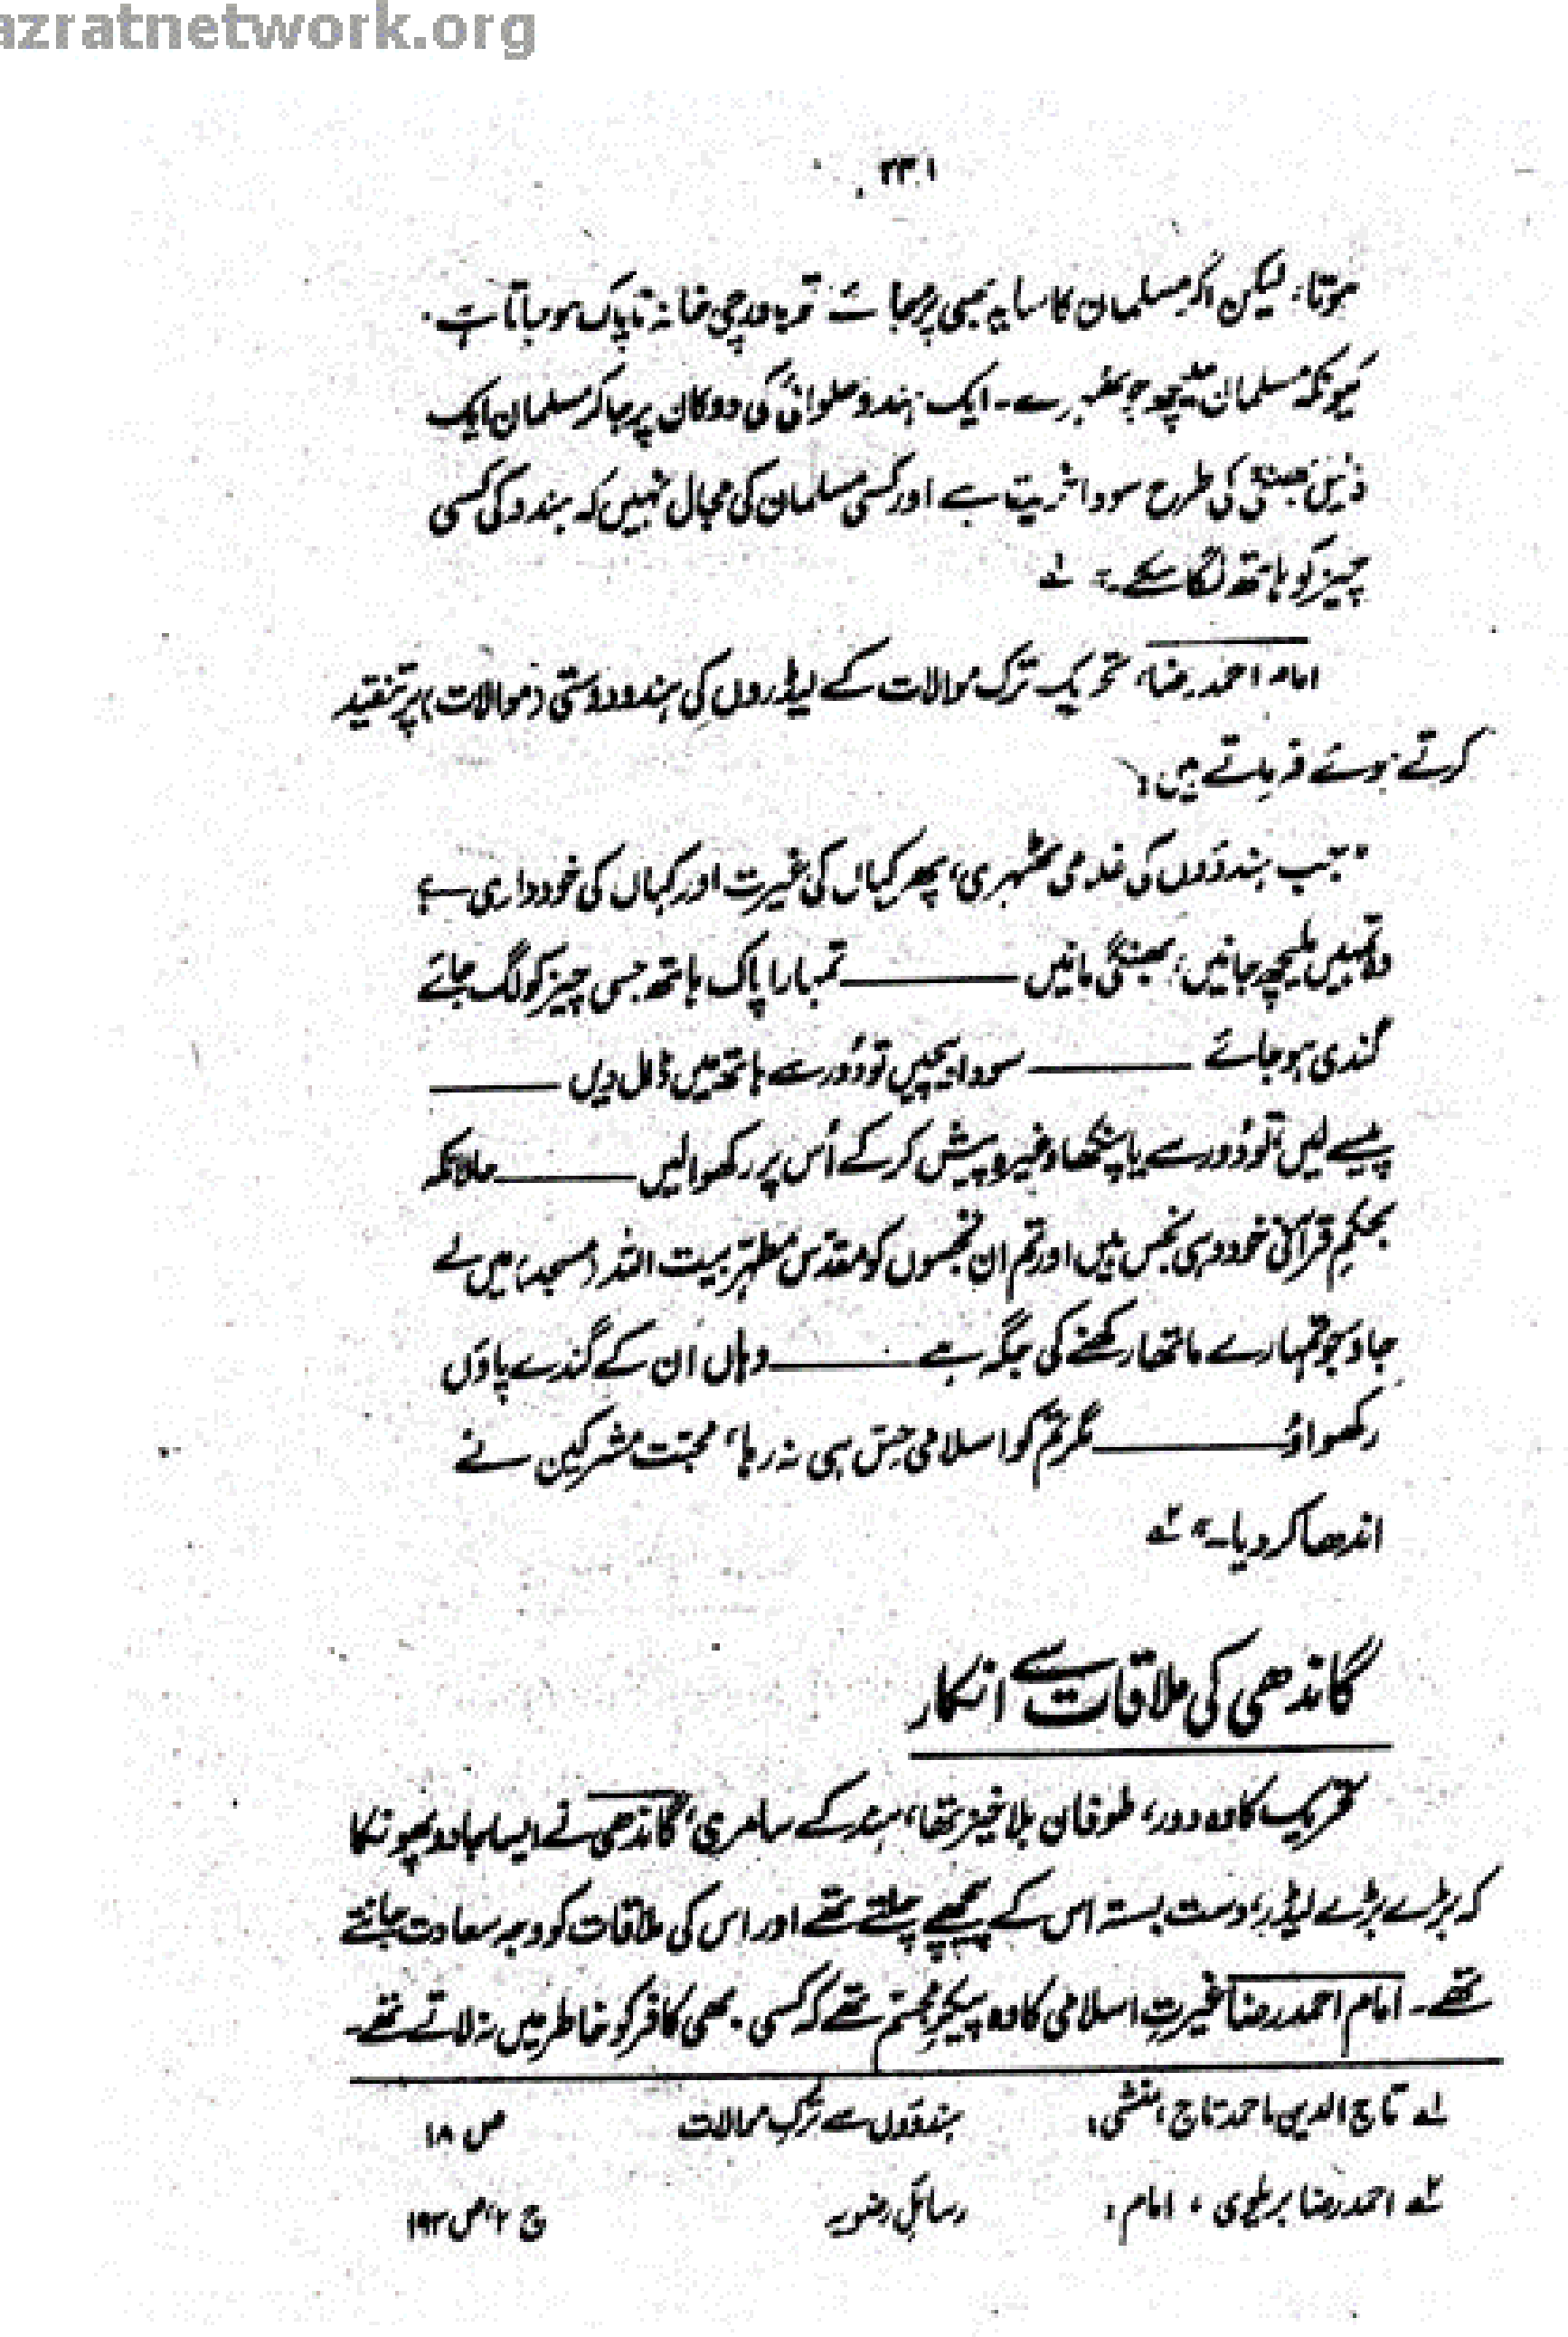 azratnetwork.org
۲۳۱
ہوتا، لیکن اگر مسلمان کا سایہ بھی پڑ جائے تو باورچی خانہ ناپاک ہو جاتا ہے۔
کیونکہ مسلمان ملیچھ جو ٹھہرے۔ ایک ہندو حلوائی کی دوکان پر جا کر مسلمان ایک
ذلیل بھنگی کی طرح سودا خریدتا ہے اور کسی مسلمان کی مجال نہیں کہ ہندو کی کسی
چیز کو ہاتھ لگا سکے۔" لے
امام احمد رضا، تحریک ترک موالات کے لیڈروں کی ہندو دوستی (موالات) پر تنقید
کرتے ہوئے فرماتے ہیں:
"جب ہندوؤں کی غلامی ٹھہری، پھر کہاں کی غیرت اور کہاں کی خودداری ہے
وہ تمہیں ملیچھ جانیں، بھنگی مانیں ——— تمہارا پاک ہاتھ جس چیز کو لگ جائے
گندی ہو جائے ——— سودا بیچیں تو دُور سے ہاتھ میں ڈال دیں ———
پیسے لیں تو دُور سے یا پنکھا وغیرہ پیش کر کے اُس پر رکھوا لیں ——— حالانکہ
بحکمِ قرآن خود وہی نجس ہیں اور تم ان نجسوں کو مقدّس مطہّر بیت اللہ (مسجد) میں لے
جاؤ جو تمہارے ماتھا رکھنے کی جگہ ہے ——— وہاں ان کے گندے پاؤں
رکھواؤ ——— مگر تم کو اسلامی حِس ہی نہ رہا، محبّت مشرکین نے
اندھا کر دیا۔" ۲ے
گاندھی کی ملاقات سے انکار
تحریک کا وہ دور، طوفان بلا خیز تھا، ہند کے سامری، گاندھی نے ایسا جادو پھونکا
کہ بڑے بڑے لیڈر، دست بستہ اس کے پیچھے چلتے تھے اور اس کی ملاقات کو وجہ سعادت جانتے
تھے۔ امام احمد رضا غیرتِ اسلامی کا وہ پیکرِ مجسّم تھے کہ کسی بھی کافر کو خاطر میں نہ لاتے تھے۔
لے تاج الدین احمد تاج، منشی: ہندوؤں سے ترکِ موالات ص ۱۸
۲ے احمد رضا بریلوی، امام: رسائل رضویہ ج ۲، ص ۱۹۲